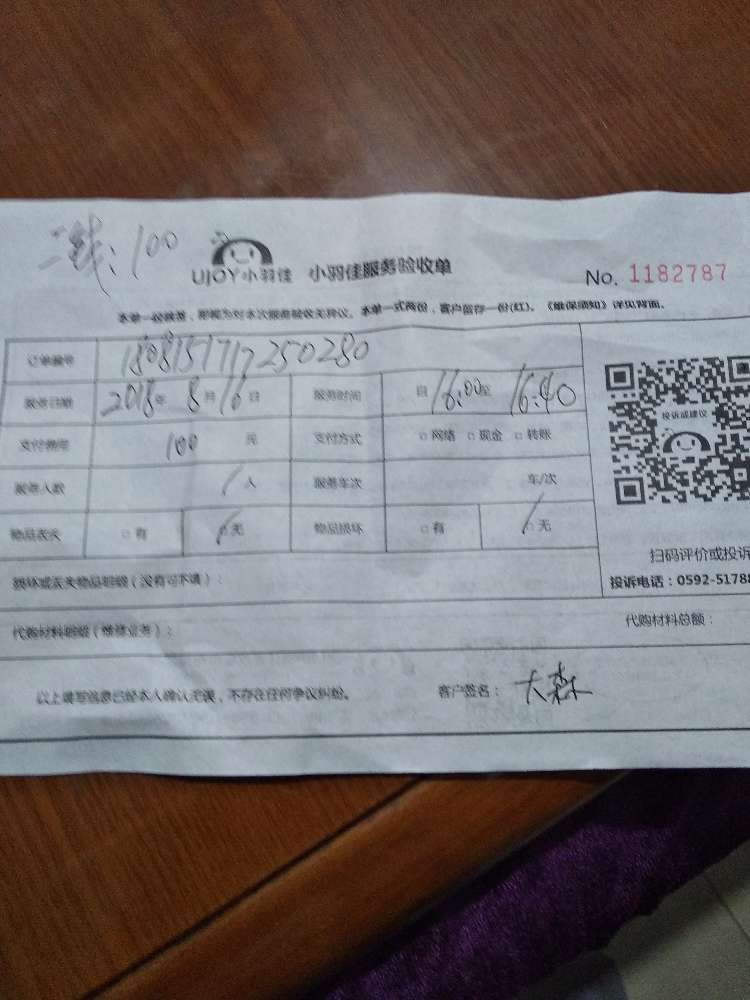 三线：100
UJOY小羽佳 小羽佳服务验收单 No. 1182787
本单一经核签，即视为对本次服务验收无异议。本单一式两份，客户留存一份(红)。《维保须知》详见背面。
订单编号 1808151717250280
服务日期 2018年 8月16日 服务时间 自16:00至 16:40
支付费用 100 元 支付方式 □网络 □现金 □转账
服务人数 1人 服务车次 车/次
物品丢失 □有 □无 物品损坏 □有 □无
投诉或建议
扫码评价或投诉
投诉电话：0592-5178
损坏或丢失物品明细（没有可不填）：
代购材料明细（维修业务）： 代购材料总额：
以上填写信息已经本人确认无误，不存在任何争议纠纷。 客户签名： 大森